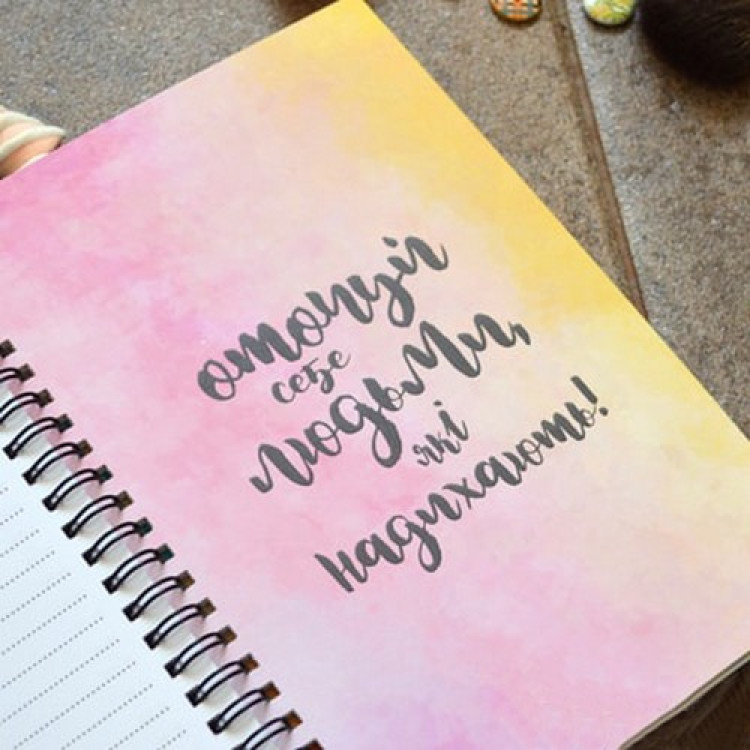 оточуй
себе
людьми,
які
надихають!